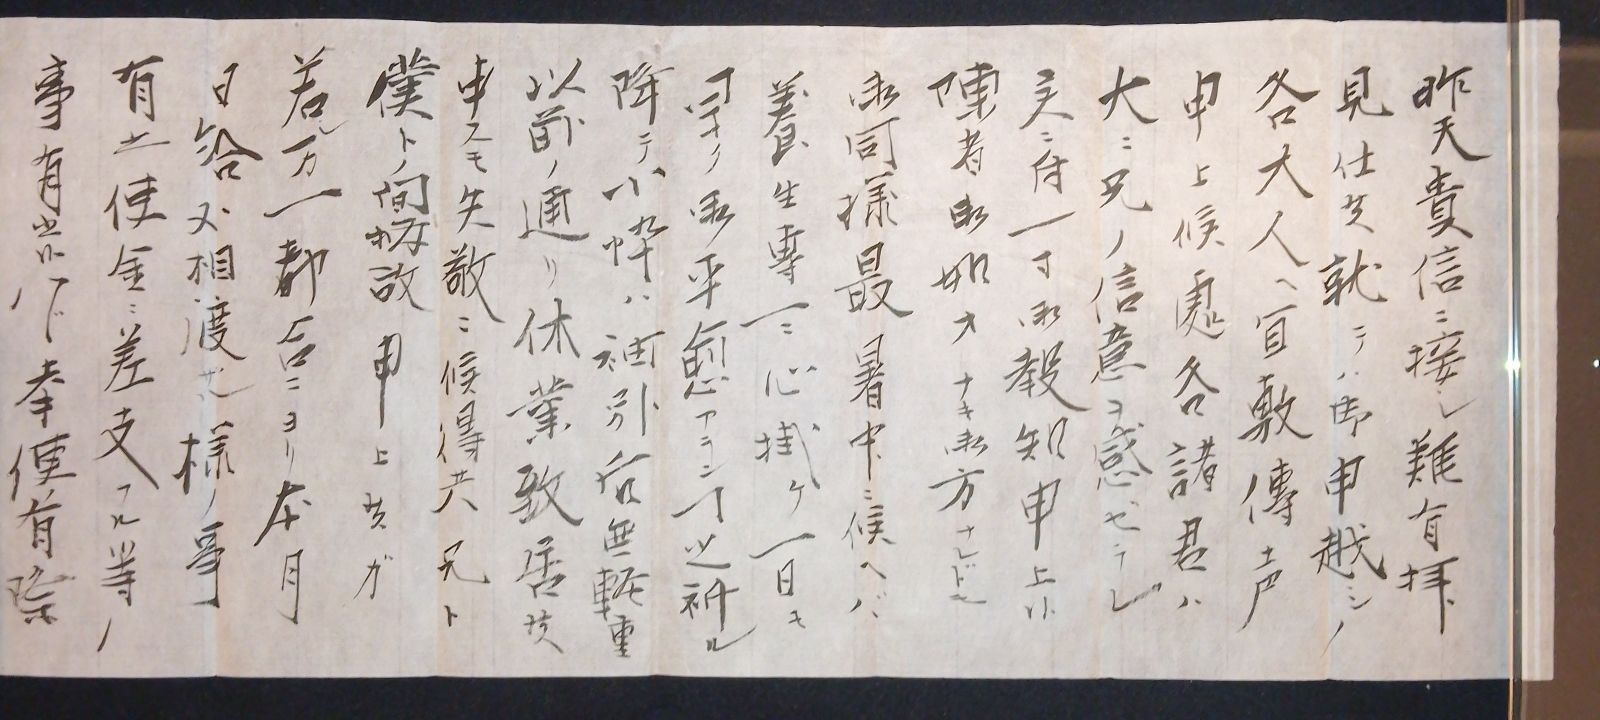 昨天貴信ニ接シ難有拝
見仕候就テハ御申越シノ
各大人ヘ宜敷傳声
申上候處各諸君ハ
大ニ兄ノ信意ヲ感ゼラレ
之ニ付一寸御報知申上候
陳者御如才ナキ御方ナレドモ
御同様最暑中ニ候ヘバ
養生専一ニ心掛ケ一日モ
早ク御平愈アランヿ之祈ル
降テ小弊ハ袖引后無軽重
以前ノ通リ休業致居候
申スモ失敬ニ候得共兄ト
僕トノ間抦故申上候ガ
若シ万一都合ニヨリ本月
日給不相渡候様ノ事
有之使金ニ差支フル等ノ
事有之候ハド奉使有際